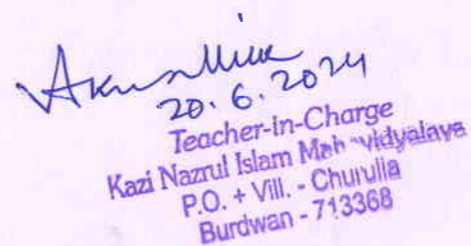 20.6.2024
Teacher-in-Charge
Kazi Nazrul Islam Mahavidyalaya
P.O. + Vill. - Churulia
Burdwan - 713368